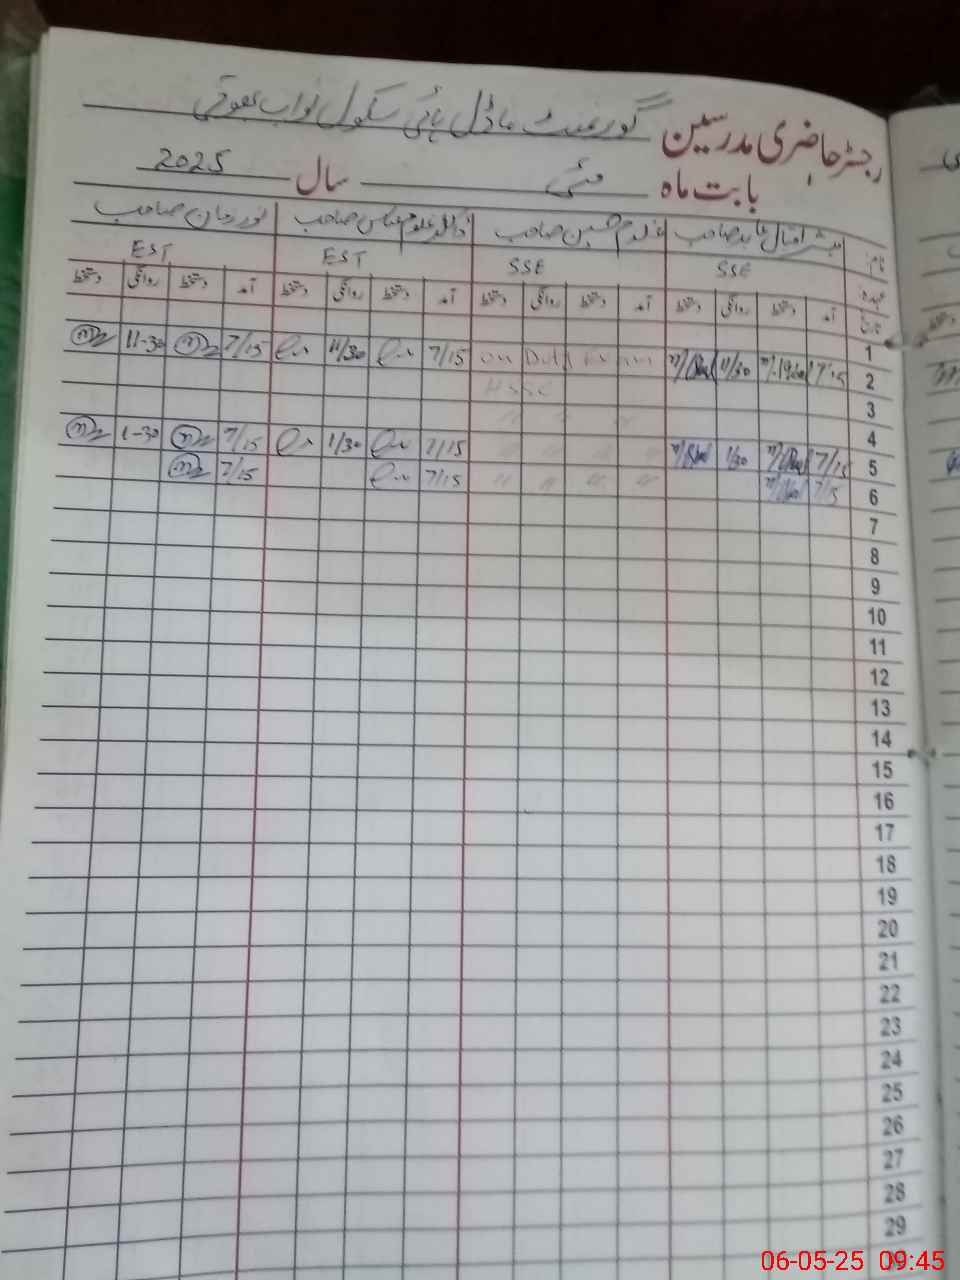 رجسٹر حاضری مدرسین گورنمنٹ ماڈل ہائی سکول نواب بھوتی
بابت ماہ مئی سال 2025
نام: مبشر اقبال عابد صاحب غلام حسین صاحب ڈاکٹر غلام عباس صاحب نور زمان صاحب
عہدہ SSE SSE EST EST
تاریخ آمد دستخط روانگی دستخط آمد دستخط روانگی دستخط آمد دستخط روانگی دستخط آمد دستخط روانگی دستخط
1
2 7/15 11/30 on Duty Exam 7/15 11/30 7/15 11-30
3 HSSC
4 〃 〃 〃
5 7/15 1/30 〃 〃 〃 〃 7/15 1/30 7/15 1-30
6 7/15 〃 〃 〃 〃 7/15 7/15
7
8
9
10
11
12
13
14
15
16
17
18
19
20
21
22
23
24
25
26
27
28
29
06-05-25 09:45